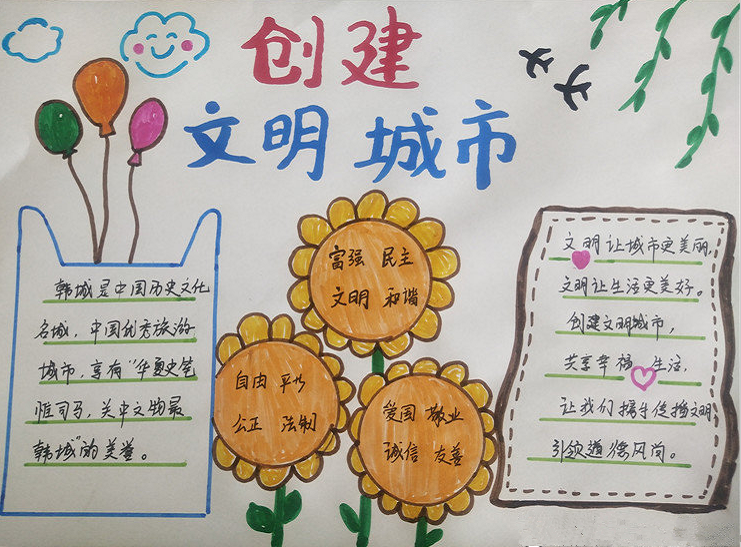 创建
文明城市
韩城是中国历史文化
名城，中国优秀旅游
城市，享有“华夏史笔
惟司马，关中文物最
韩城”的美誉。
富强 民主
文明 和谐
自由 平等
公正 法制
爱国 敬业
诚信 友善
文明让城市更美丽，
文明让生活更美好。
创建文明城市，
共享幸福生活，
让我们携手传播文明，
引领道德风尚。